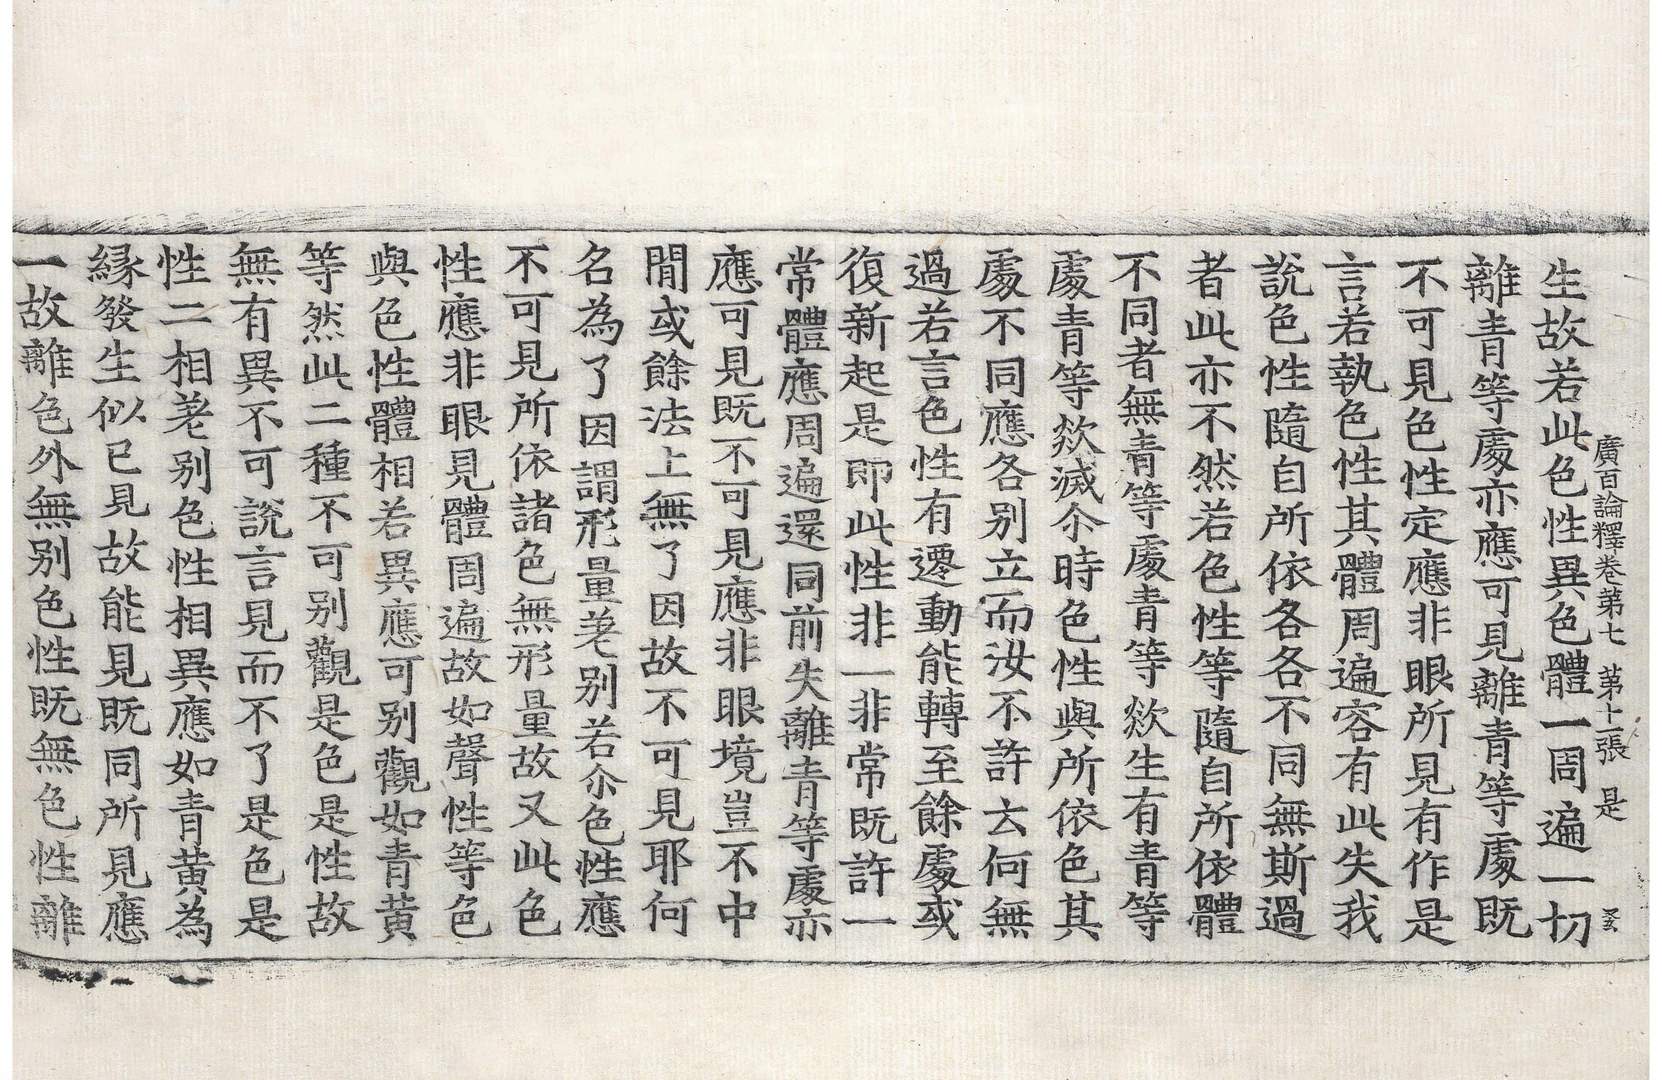 廣百論釋卷第七　第十二張　是
生故若此色性異色體一周遍一切
離青等處亦應可見離青等處既
不可見色性定應非眼所見有作是
言若執色性其體周遍容有此失我
說色性隨自所依各各不同無斯過
者此亦不然若色性等隨自所依體
不同者無青等處青等欻生有青等
處青等欻滅尒時色性與所依色其
處不同應各別立而汝不許云何無
過若言色性有遷動能轉至餘處或
復新起是即此性非一非常既許一
常體應周遍還同前失離青等處亦
應可見既不可見應非眼境豈不中
閒或餘法上無了因故不可見耶何
名為了因謂形量差別若尒色性應
不可見所依諸色無形量故又此色
性應非眼見體周遍故如聲性等色
與色性體相若異應可別觀如青黃
等然此二種不可別觀是色是性故
無有異不可說言見而不了是色是
性二相差別色性相異應如青黃為
緣發生似已見故能見既同所見應
一故離色外無別色性既無色性離